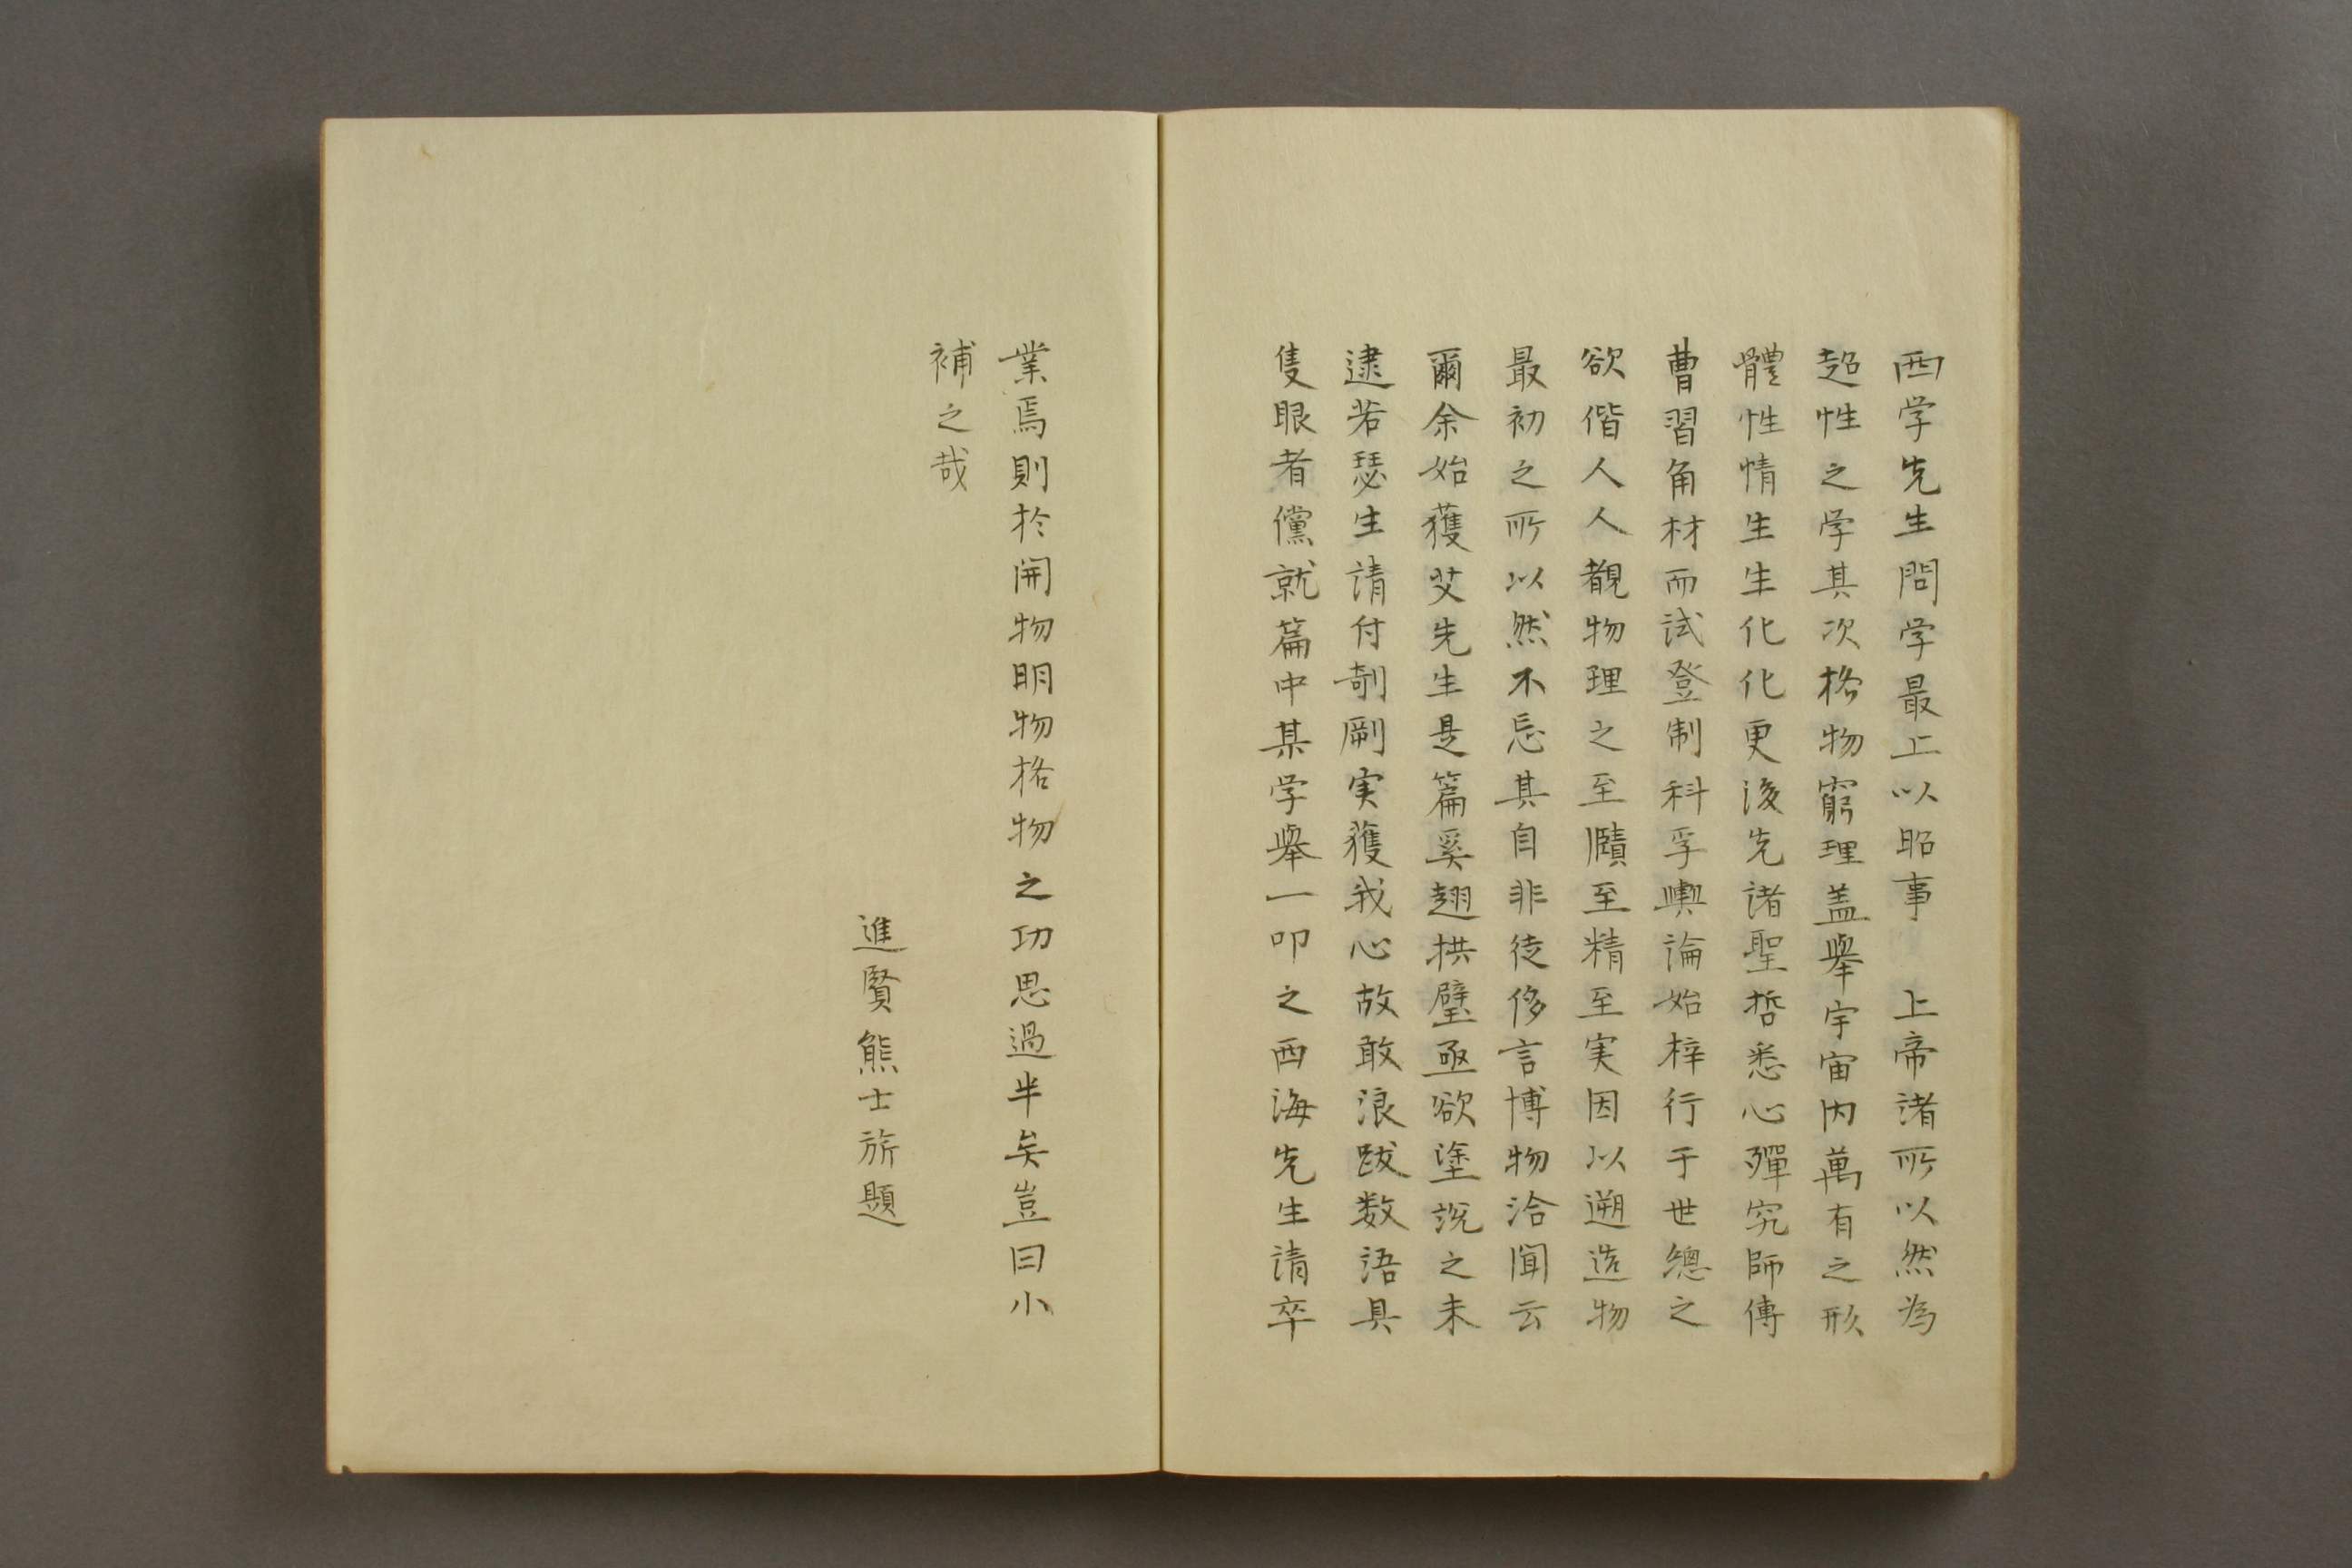 西学先生問学最上以昭事　上帝諸所以然為
超性之学其次格物窮理盖舉宇宙内萬有之形
體性情生生化化更後先諸聖哲悉心殫究師傅
曹習角材而試登制科孚輿論始梓行于世總之
欲偕人人覩物理之至賾至精至実因以遡造物
最初之所以然不忘其自非徒侈言博物洽聞云
爾余始獲艾先生是篇奚翅拱璧亟欲塗說之未
逮若瑟生請付剞劂実獲我心故敢浪跋数語具
隻眼者儻就篇中某学舉一叩之西海先生請卒
業焉則於開物明物格物之功思過半矣豈曰小
補之哉
進賢熊士旂題